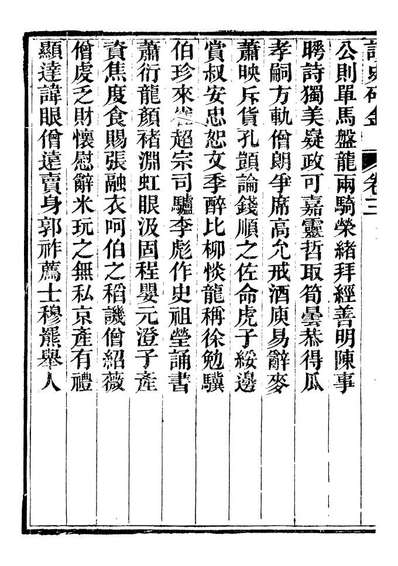 卷三
公則單馬盤龍兩騎榮緒拜經善明陳事
聘詩獨美疑政可嘉靈哲取筍曇恭得瓜
孝嗣方軌僧朗爭席高允戒酒庾易辭麥
蕭映斥貨孔顗論錢順之佐命虎子綏邊
賞叔安忠恕文季醉比柳惔龍稱徐勉驥
伯珍來超宗司驢李彪作史祖瑩誦書
蕭衍龍顏褚淵虹眼汲固程嬰元澄子產
責焦度食賜張融衣呵伯之稻譏僧紹薇
僧虔乏財懷慰辭米玩之無私京產有禮
顯達諱眼僧遠賣身郭祚薦士穆羆舉人